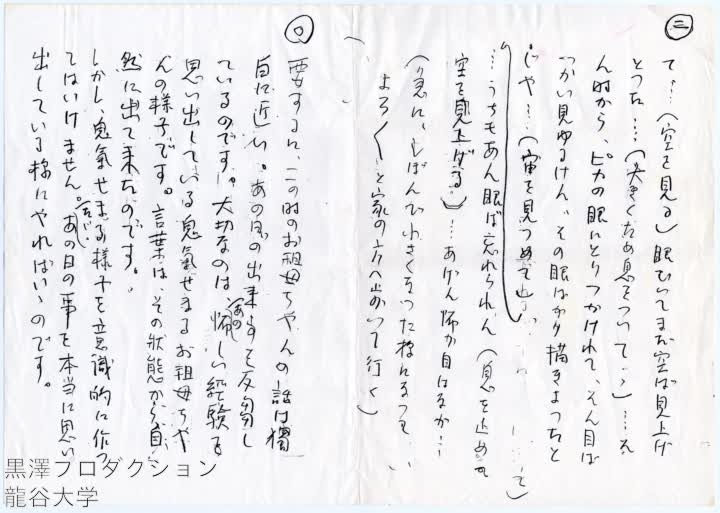 ㊁
て‥‥(空を見る)眼むいてまだ空ば見上げ
とった‥‥(大きくため息をついて‥)‥‥そ
ん時から、ピカの眼にとりつかれて、そん目ば
っかい見ゆるけん、その眼ばかり描きよったと
じゃ‥‥(宙を見つめて
‥‥うちもあん眼ば忘れられん(息を止めて
空を見上げる)‥‥あげん怖か目はなか‥‥
(急に、しぼんで小さくなった様になって
よろ〱と家の方へ向って行く)
要するに、この時のお祖母ちゃんの話は獨
白に近い。あの日の出来事を反芻し
ているのです。大切なのは、あの怖しい経験を
思い出している鬼氣せまるお祖母ちゃ
んの様子です。言葉は、その状態から自
然に出て来たのです。
しかし、鬼氣せまる様子を意識的に作っ
てはいけません。あの日の事を本当に思い
出している様にやればいいのです。
黒澤プロダクション
龍谷大学